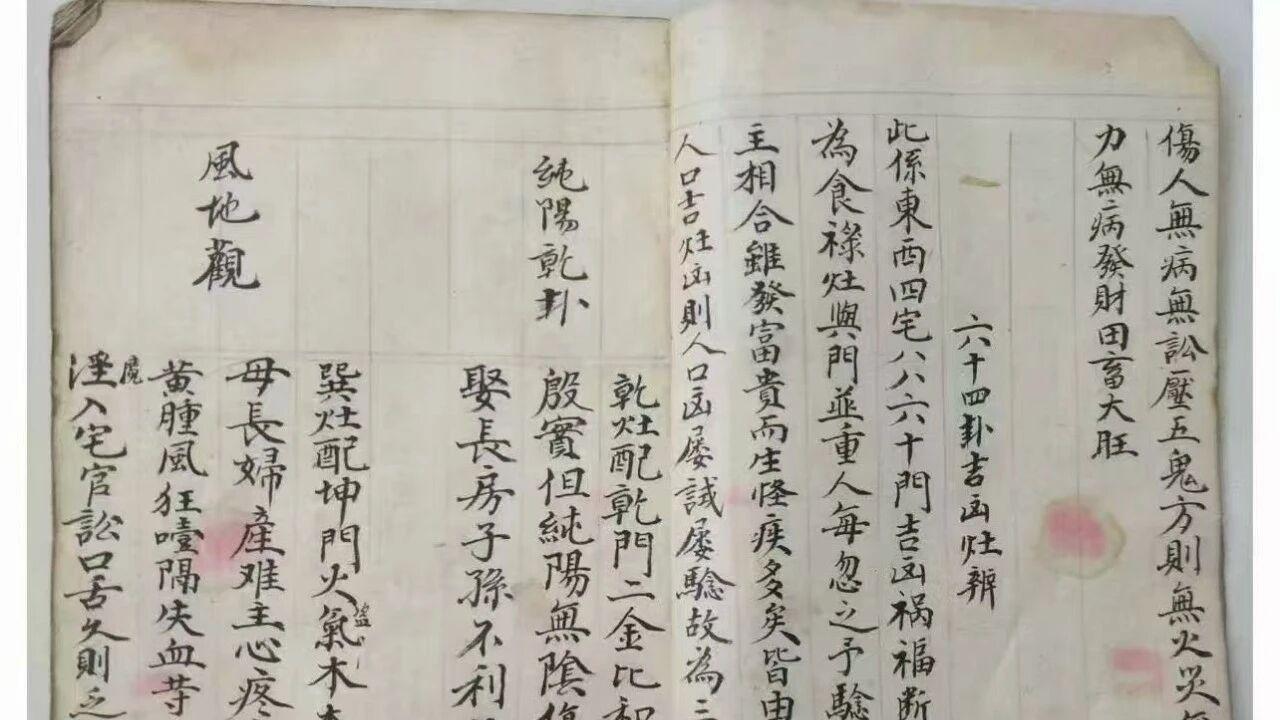 傷人無病無訟壓五鬼方則無火災
力無病發財田畜大旺
六十四卦吉凶灶辨
此係東西四宅八八六十門吉凶禍福断
為食祿灶與門並重人每忽之予驗
主相合雖發富貴而生怪疾多矣皆由
人口吉灶凶則人口凶屡試屡驗故為二
純陽乾卦
乾灶配乾門二金比和
殷實但純陽無陰傷
娶長房子孫不利
風地觀
巽灶配坤門火氣盗木
母長婦產难主心疼
黄腫風狂噎隔失血等
淫魔入宅官訟口舌久則乏